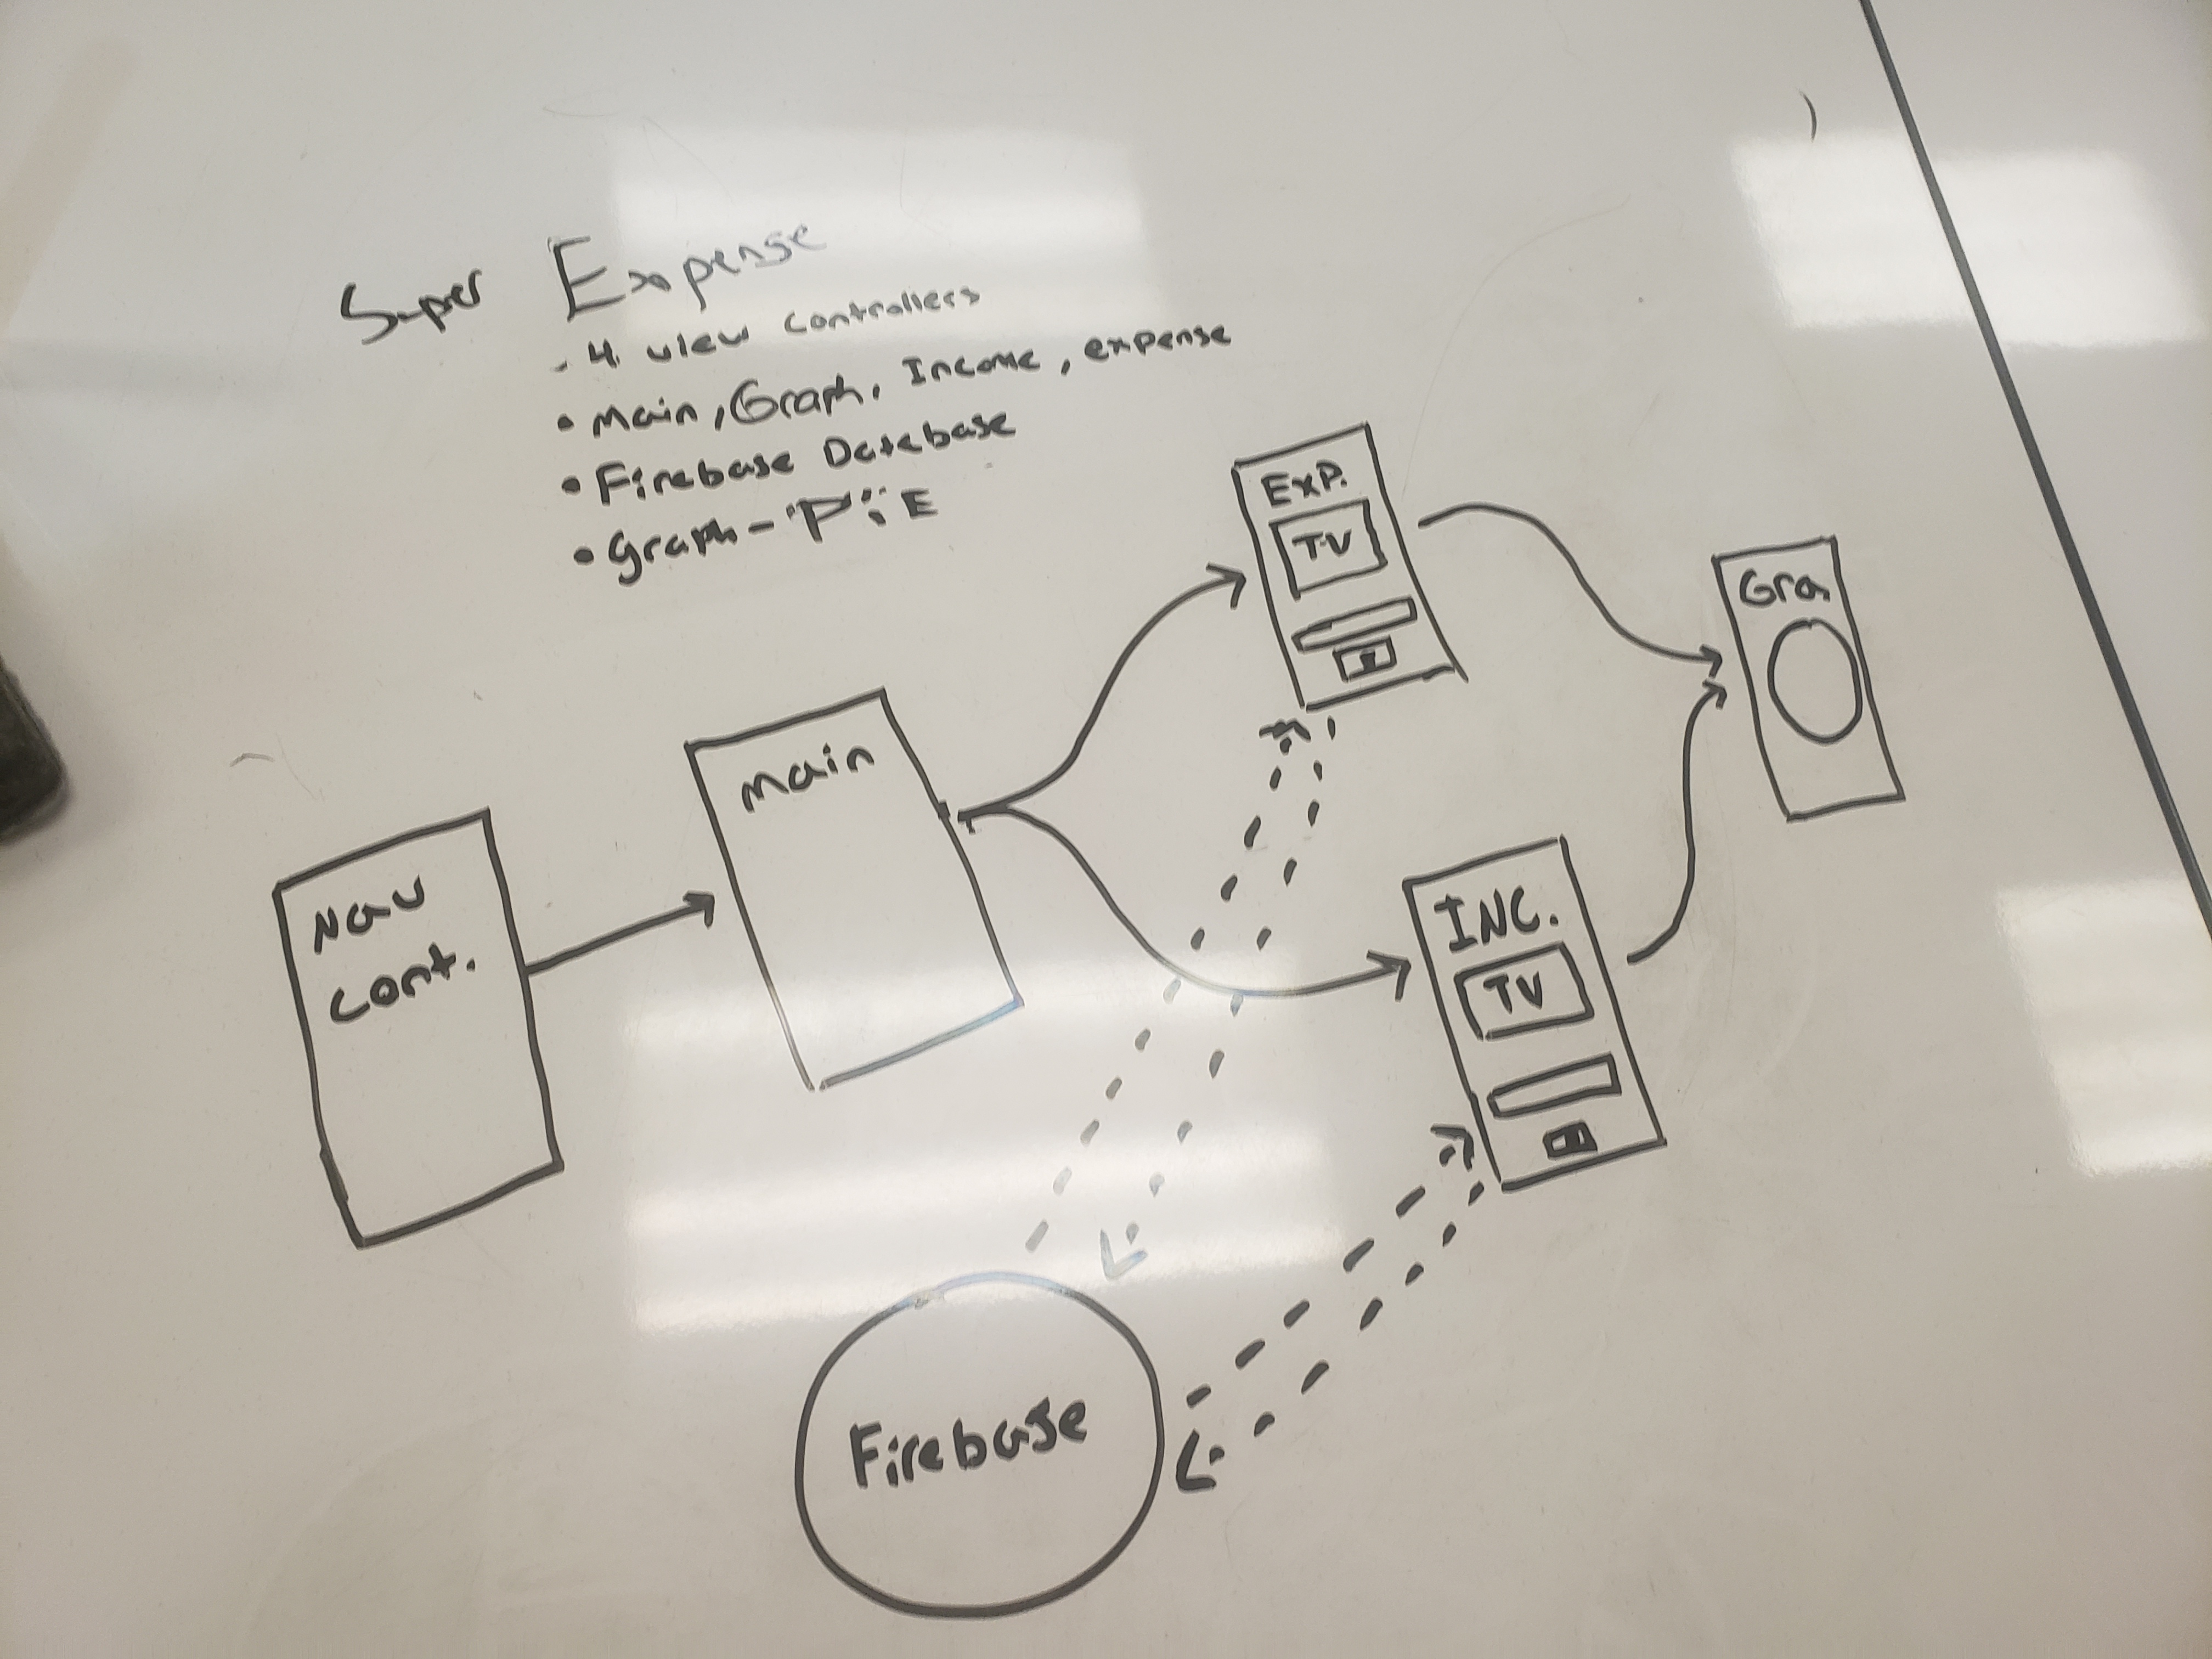 Super Expense
- 4 view controllers
• Main, Graph, Income, expense
• Firebase Database
• Graph - PiE
Nav
Cont.
Main
Exp.
TV
INC.
TV
Gra
Firebase